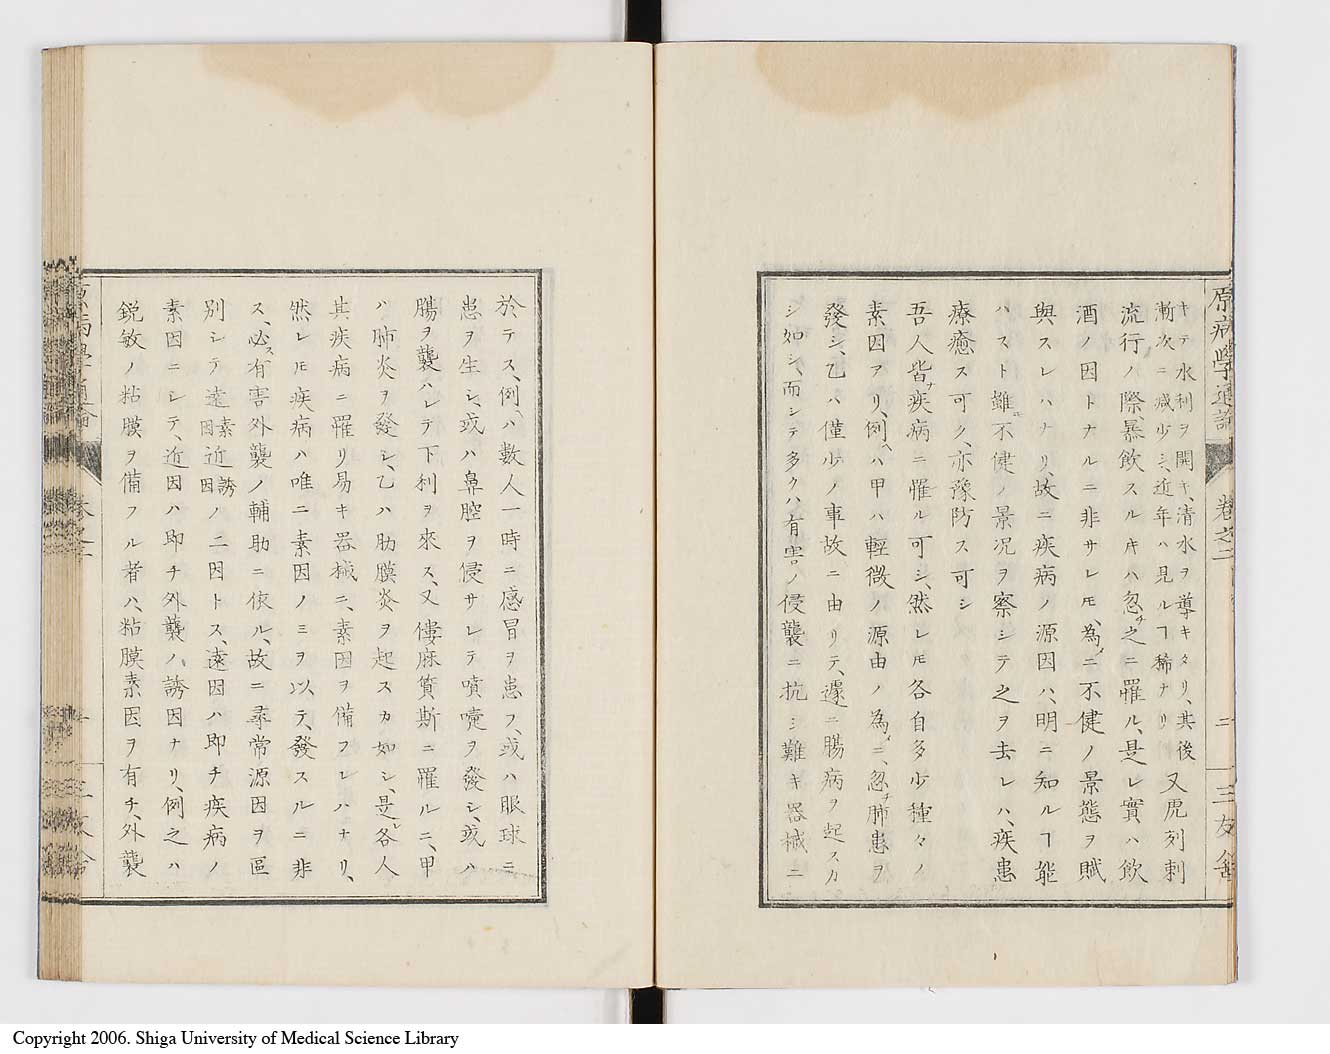 原病學通論
卷之二
二
三友舎
キテ水利ヲ開キ、清水ヲ導キタリ、其後
漸次ニ減少シ、近年ハ見ルヿ稀ナリ又虎列刺
流行ノ際、暴飲スルキハ忽チ之ニ罹ル、是レ實ハ飲
酒ノ因トナルニ非サレ𪜈、為ニ不健ノ景態ヲ賦
與スレハナリ、故ニ疾病ノ源因ハ、明ニ知ルヿ能
ハスト雖モ不健ノ景况ヲ察シテ之ヲ去レハ、疾患
療癒ス可ク、亦豫防ス可シ
吾人皆ナ疾病ニ罹ル可シ、然レ𪜈各自多少種々ノ
素因アリ、例ヘハ甲ハ輕微ノ源由ノ為ニ、忽チ肺患ヲ
發シ、乙ハ僅少ノ事故ニ由リテ、遽ニ腸病ヲ起スカ
シ如シ、而シテ多クハ有害ノ侵襲ニ抗シ難キ器械ニ
於テス、例ハ數人一時ニ感冒ヲ患フ、或ハ眼球ニ
患ヲ生シ、或ハ鼻腔ヲ侵サレテ噴嚔ヲ發シ、或ハ
腸ヲ襲ハレテ下利ヲ來ス、又僂麻質斯ニ罹ルニ、甲
ハ肺炎ヲ發シ、乙ハ肋膜炎ヲ起スカ如シ、是レ各人
其疾病ニ罹リ易キ器械ニ、素因ヲ備フレハナリ、
然レ𪜈疾病ハ唯ニ素因ノミヲ以テ、發スルニ非
ス、必ス有害外襲ノ輔助ニ依ル、故ニ尋常源因ヲ區
別シテ遠因素因近因誘因ノ二因トス、遠因ハ即チ疾病ノ
素因ニシテ、近因ハ即チ外襲ノ誘因ナリ、例之ハ
鋭敏ノ粘膜ヲ備フル者ハ、粘膜素因ヲ有チ、外襲
Copyright 2006. Shiga University of Medical Science Library